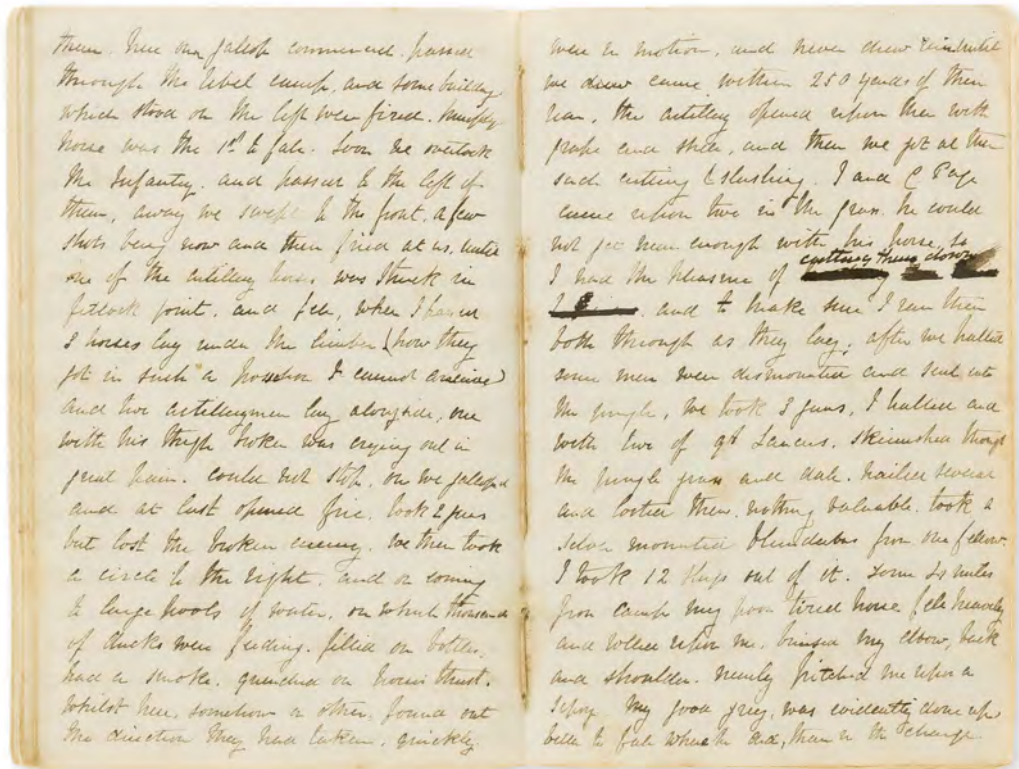 them. here our gallop commenced. passed
through the rebel camp, and some building
which stood on the left were fired.
horse was the 1st to fall. Soon we overtook
the Infantry. and passed to the left of
them, away we swept to the front. a few
shots being now and then fired at us, until
one of the artillery horses was struck in
fetlock joint. and fell, when I passed
3 horses lay under the limber (how they
got in such a position I cannot conceive)
and two artillerymen lay alongside, one
with his thigh broken was crying out in
great pain. could not stop, on we galloped
and at last opened fire. took 2 guns
but lost the broken enemy. we then took
a circle to the right. and on coming
to large pools of water, on which thousands
of ducks were feeding. filled our bottles,
had a smoke. quenched our horses thirst.
Whilst here, somehow or other, found out
the direction they had taken. quickly
were in motion, and never drew rein until
we came within 250 yards of their
rear, the artillery opened upon them with
grape and shell, and then we got at them
such cutting & slashing. I and C Page
came upon two in the grass. he could
not get near enough with his horse, so
I had the pleasure of cutting them down
and to make sure I ran them
both through as they lay. after we halted
some men were dismounted and sent into
the jungle, we took 3 guns, I halted and
with two of 9th Lancers. skirmished through
the jungle grass and . nailed several
and looted them. nothing valuable. took a
silver mounted blunderbus from one fellow.
I took 12 slugs out of it. some 2½ miles
from camp my poor tired horse fell heavily
and rolled upon me. bruised my elbow, back
and shoulder. nearly pitched me upon a
Sepoy. My good grey, was evidently done up
better to fall where he did, than in the charge.